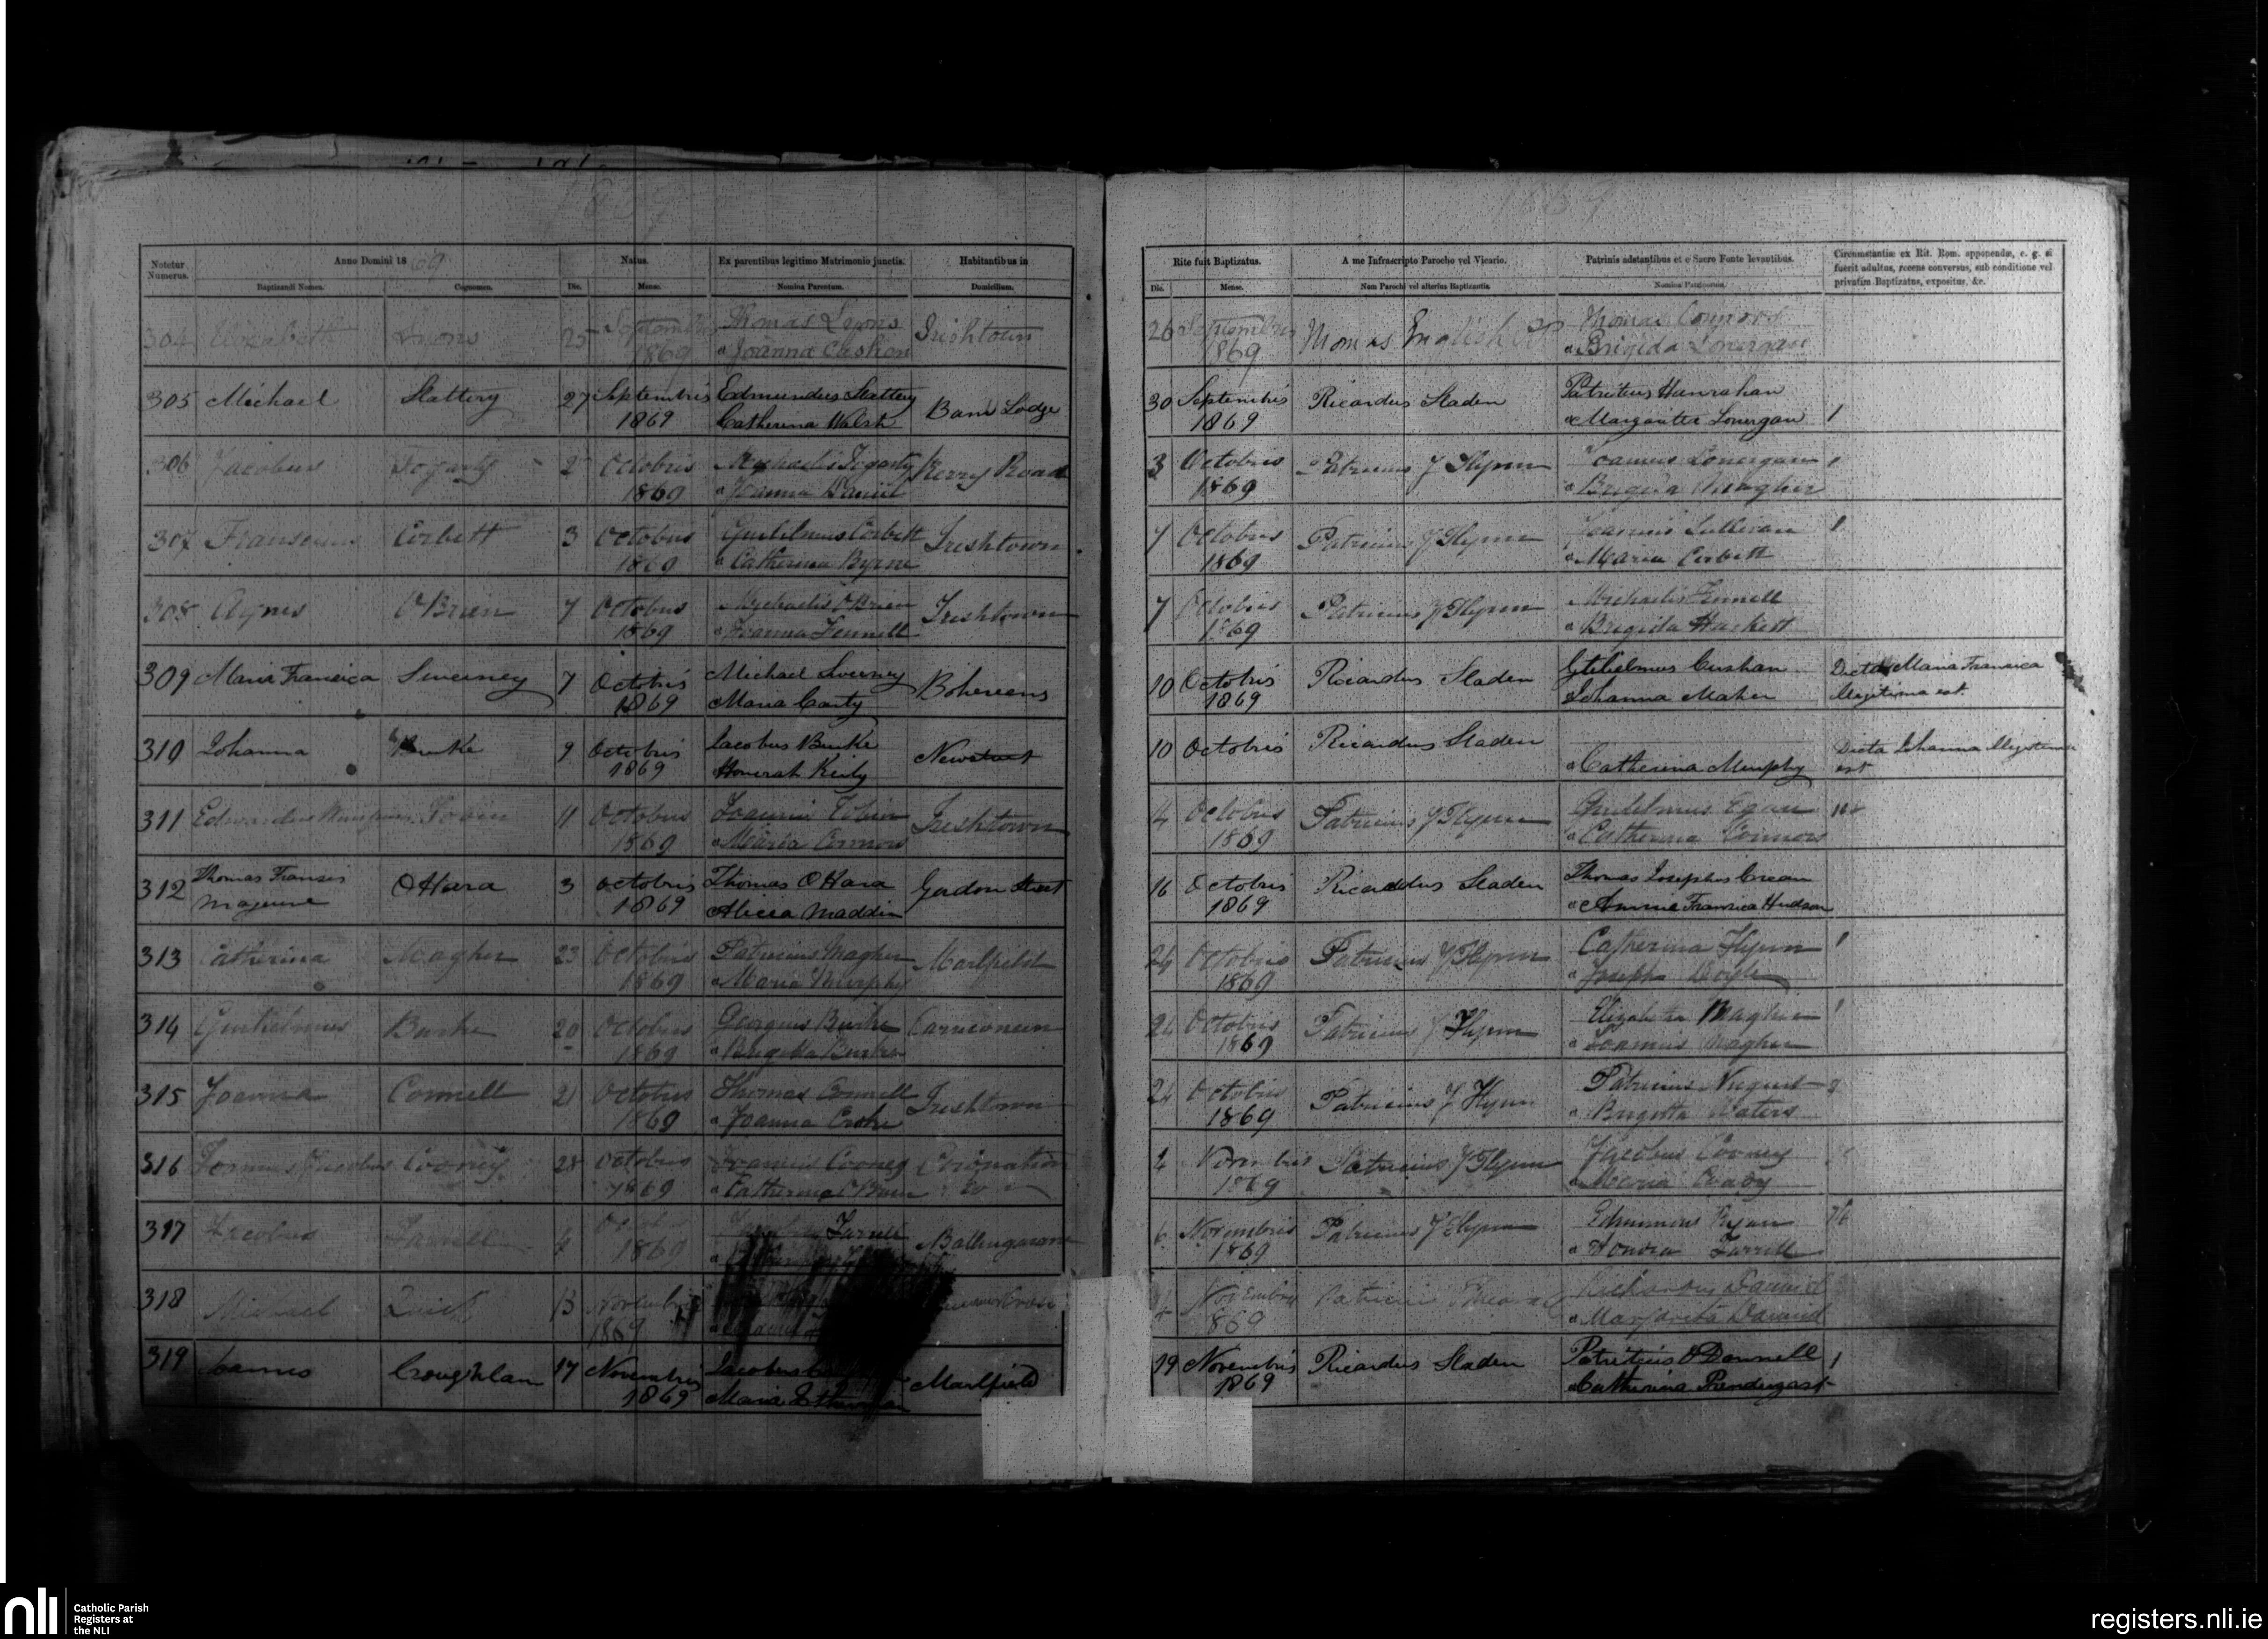 1869
1869
Notetur Numerus.
Anno Domini 1869
Natus.
Ex parentibus legitimo Matrimonio junctis.
Habitantibus in
Baptizandi Nomen.
Cognomen.
Die.
Mense.
Nomina Parentum.
Domicilium.
Rite fuit Baptizatus.
A me Infrascripto Parocho vel Vicario.
Patrinis adstantibus et e Sacro Fonte levantibus.
Circumstantiæ ex Rit. Rom. apponendæ, e. g. si
fuerit adultus, recens conversus, sub conditione vel
privatim Baptizatus, expositus, &c.
Die.
Mense.
Nom Parochi vel alterius Baptizantis
Nomina Patrinorum.
304 Elizabeth Lyons 25 Septembris Thomas Lyons Irishtown 26 Septembris Thomas English Thomas Connors
1869 & Joanna Cashen 1869 & Brigida Lonergan
305 Michael Slattery 27 Septembris Edmundus Slattery Lodge 30 Septembris Ricardus Sladen Patritius Hanrahan
1869 Catherina Walsh 1869 & Margarita Lonergan
306 Jacobus Fogarty 2 Octobris Michaelis Fogarty Kerry Road 3 Octobris Patricius J Flynn Joannes Lonergan
1869 & Joanna Daniel 1869 & Brigida Meagher
307 Corbett 3 Octobris Gulielmus Corbett Irishtown 7 Octobris Patricius J Flynn Joannis Sullivan
1869 & Catherina Byrne 1869 & Maria Corbett
308 Agnes O'Brien 7 Octobris Michaelis O'Brien Irishtown 7 Octobris Patricius J Flynn Michaelis Fennell
1869 & Joanna Fennell 1869 & Brigida Hackett
309 Maria Francisca Sweeney 7 Octobris Michael Sweeney Bohereens 10 Octobris Ricardus Sladen Gulielmus Cushan Dicta Maria Francisca
1869 Maria Canty 1869 Johanna Maher illegitima est
310 Johanna Burke 9 Octobris Jacobus Burke 10 Octobris Ricardus Sladen Dicta Johanna illegitima
1869 Honorah Keily & Catherina Murphy est
311 Tobin 11 Octobris Joannis Tobin Irishtown 14 Octobris Patricius J Flynn Gulielmus Egan
1869 & Maria Connors 1869 & Catherina Connors
312 Thomas Francis O'Hara 3 Octobris Thomas O'Hara Street 16 Octobris Ricardus Sladen Thomas Josephus Crean
1869 Alicia Maddin 1869 & Anna Francisca Hudson
313 Catherina Meagher 23 Octobris Patricius Magher Marlfield 24 Octobris Patricius J Flynn Catherina Flynn
1869 & Maria Murphy 1869 & Joseph Doyle
314 Gulielmus Burke 20 Octobris Georgius Burke 24 Octobris Patricius J Flynn Elizabetha Magher
1869 & Brigitta 1869 & Joannes Magher
315 Joanna Connell 21 Octobris Thomas Connell Irishtown 24 Octobris Patricius J Flynn Patricius Nugent
1869 & Joanna Croke 1869 & Brigitta Waters
316 Joannes Jacobus Cooney 28 Octobris Joannis Cooney Coronation 2 Novembris Patricius J Flynn Jacobus Cooney
1869 & Catherina O'Brien 1869 & Maria
317 Jacobus Farrell 4 1869 Farrell 6 Novembris Patricius J Flynn Edmundus Ryan
1869 & Honora Farrell
318 Michael Quirk 13 Novembris Patricius Daniel
1869 1869 & Margarita Daniel
319 Joannes Croughlan 17 Novembris Jacobus Marlfield 19 Novembris Ricardus Sladen Patritius O'Donnell
1869 Maria 1869 & Catherina Prendergast
nli
Catholic Parish
Registers at
the NLI
registers.nli.ie